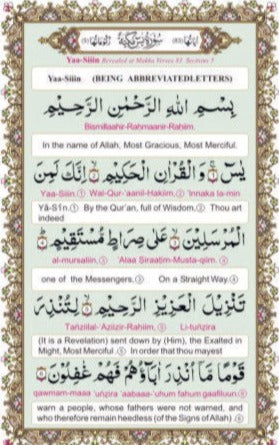 سُوْرَةُ يٰسٓ مَكِّيَّةٌ
Yaa-Siiin Revealed at Makka Verses 83 Sections 5
Yaa-Siiin (BEING ABBREVIATEDLETTERS)
بِسْمِ اللّٰهِ الرَّحْمٰنِ الرَّحِيْمِ
Bismillaahir-Rahmaanir-Rahiim.
In the name of Allah, Most Gracious, Most Merciful.
يٰسٓ ۚ وَالْقُرْاٰنِ الْحَكِيْمِ ۙ اِنَّكَ لَمِنَ
Yaa-Siiin.① Wal-Qur-'aanil-Hakiim,② 'Innaka la-min
Yã-Sĩn.① By the Qur'an, full of Wisdom,② Thou art
indeed
الْمُرْسَلِيْنَ ۙ عَلٰى صِرَاطٍ مُّسْتَقِيْمٍ ؕ
al-mursaliin,③ 'Alaa Siraatim-Musta-qiim.④
one of the Messengers,③ On a Straight Way.④
تَنْزِيْلَ الْعَزِيْزِ الرَّحِيْمِ ۙ لِتُنْذِرَ
Tanziilal-'Aziizir-Rahiim,⑤ Li-tunzira
(It is a Revelation) sent down by (Him), the Exalted in
Might, Most Merciful.⑤ In order that thou mayest
قَوْمًا مَّاۤ اُنْذِرَ اٰبَآؤُهُمْ فَهُمْ غٰفِلُوْنَ
qawmam-maaa 'unzira 'aabaaa-'uhum fahum gaafiluun.⑥
warn a people, whose fathers were not warned, and
who therefore remain heedless (of the Signs of Allah).⑥